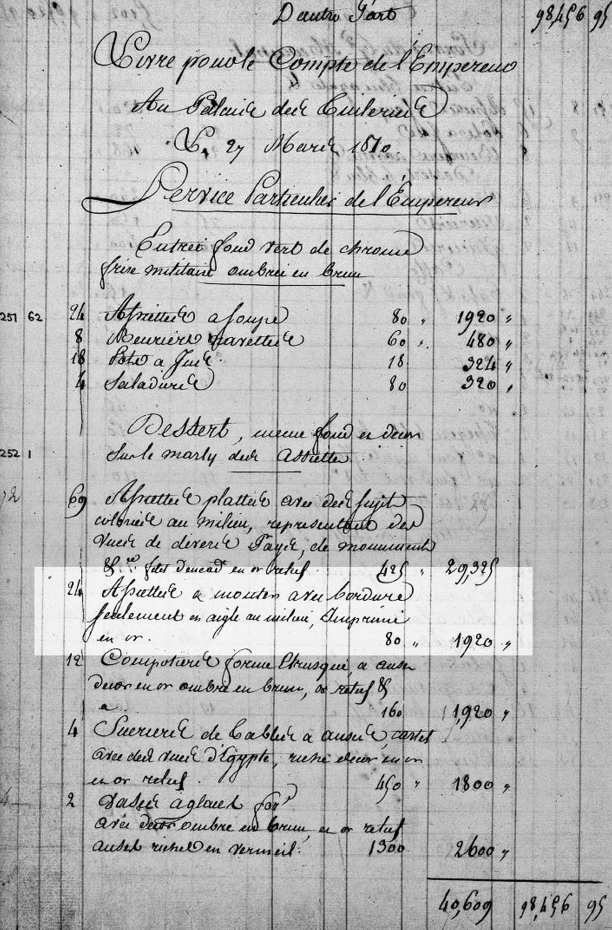 D'autre Part 98,456 95
Livré pour le Compte de l'Empereur
Au Palais des Tuileries
Le 27 Mars 1810.
Service Particulier de l'Empereur
Entrée fond vert de chrome
frise militaire ombrée en brun
251 62 24 Assiettes a soupe 80 " 1920 "
8 Beurriers navettes 60 " 480 "
18 Pots a Jus 18 324 "
4 Saladiers 80 320 "
Dessert, même fond et décor
252 1 sur le marly des assiettes
69 Assiettes plattes avec des sujets
coloriés au milieu, representant des
vues de divers Pays, de monuments
&.ca filets d'encad.t en or relief. 425 " 29,325
24 Assiettes a monter avec bordure
seulement et aigle au milieu, Imprimé
en or. 80 " 1920 "
12 Compotiers forme Etrusque, a
décor en or ombré en brun, or relief &
160 1,920 "
4 Sucriers de Tables a anses,
avec des vues d'Egypte, riche décor en or
en or relief. 450 " 1800 "
2 Vases a glaces
avec décor ombré en brun, et or relief
anses riches en vermeil. 1300 2600 "
40,609 98,456 95